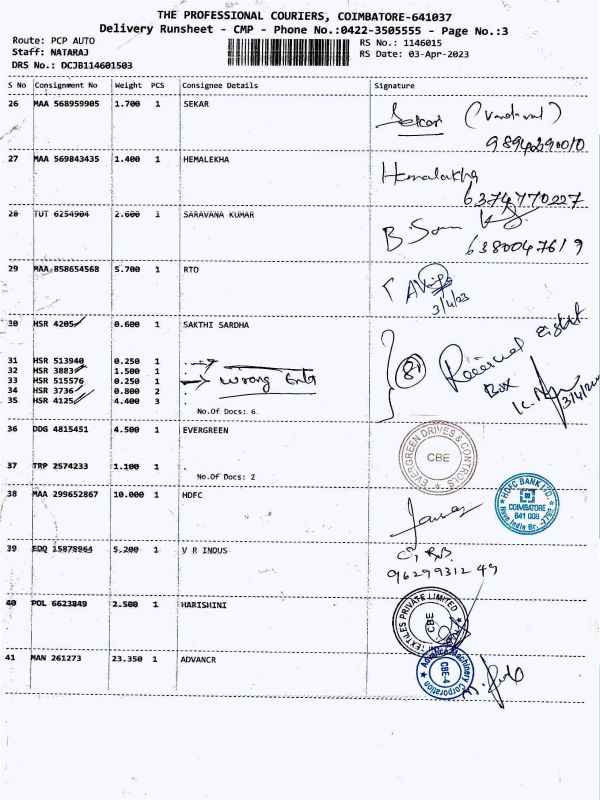 THE PROFESSIONAL COURIERS, COIMBATORE-641037
Delivery Runsheet - CMP - Phone No.:0422-3505555 - Page No.:3
Route: PCP AUTO RS No.: 1146015
Staff: NATARAJ RS Date: 03-Apr-2023
DRS No.: DCJB114601503
S No Consignment No Weight PCS Consignee Details Signature
26 MAA 568959905 1.700 1 SEKAR
Sekar
27 MAA 569843435 1.400 1 HEMALEKHA
Hemalekha
6374770227
28 TUT 6254904 2.600 1 SARAVANA KUMAR
6380047619
29 MAA 858654568 5.700 1 RTO
3/4/23
30 HSR 4205 0.600 1 SAKTHI SARDHA
31 HSR 513940 0.250 1 .
32 HSR 3883 1.500 1 .
33 HSR 515576 0.250 1 . wrong
34 HSR 3736 0.800 2 .
35 HSR 4125 4.400 3 .
8 Received eight
Box
3/4/20
No.Of Docs: 6
36 DDG 4815451 4.500 1 EVERGREEN
EVERGREEN DRIVES & CONTROLS
CBE
37 TRP 2574233 1.100 1 .
No.Of Docs: 2
38 MAA 299652867 10.000 1 HDFC
HDFC BANK LTD.
COIMBATORE
641 008
39 EDQ 15878964 5.200 1 V R INDUS
9629931249
40 POL 6623849 2.500 1 HARISHINI
TEXTILES PRIVATE LIMITED
CBE
41 MAN 261273 23.350 1 ADVANCR
Advance Machinery Corporation
CBE-4